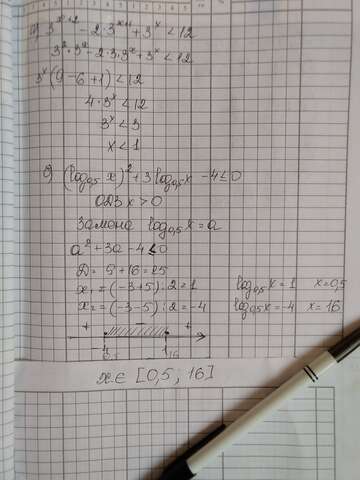 3^(x+2) - 2·3^(x+1) + 3^x < 12
3²·3^x - 2·3·3^x + 3^x < 12
3^x (9-6+1) < 12
4·3^x < 12
3^x < 3
x < 1
(log₀,₅ x)² + 3 log₀,₅ x - 4 ≤ 0
ОДЗ x > 0
Замена log₀,₅ x = a
a² + 3a - 4 ≤ 0
D = 9 + 16 = 25
x₁ = (-3+5) : 2 = 1 log₀,₅ x = 1 x = 0,5
x₂ = (-3-5) : 2 = -4 log₀,₅ x = -4 x = 16
+ - +
-4 1
0,5 16
x ∈ [0,5 ; 16]